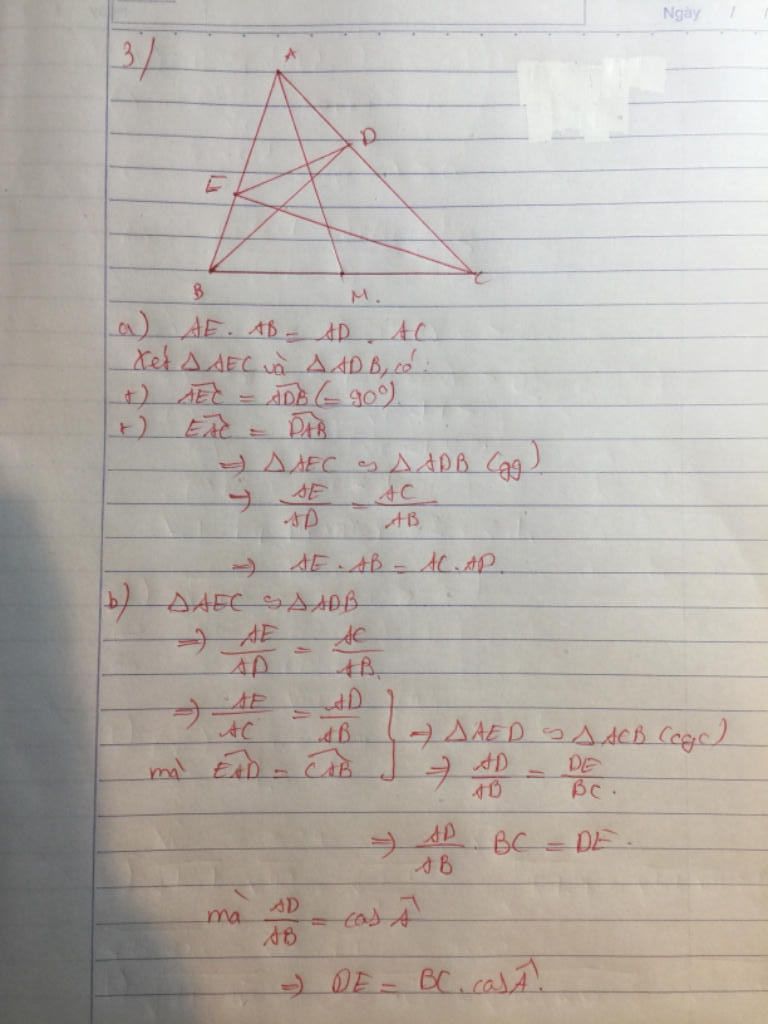 Ngày / /
3/
A
D
E
B
M.
C
a) AE . AB = AD . AC
Xét △AEC và △ADB, có:
+) \widehat{AEC} = \widehat{ADB} (= 90°)
+) \widehat{EAC} = \widehat{DAB}
⇒ △AEC ∽ △ADB (gg)
→ AE/AD = AC/AB
⇒ AE . AB = AC . AD.
b) △AEC ∽ △ADB
⇒ AE/AD = AC/AB.
⇒ AE/AC = AD/AB } ⇒ △AED ∽ △ACB (cgc)
mà \widehat{EAD} = \widehat{CAB} ⇒ AD/AB = DE/BC.
⇒ AD/AB . BC = DE.
mà AD/AB = cos \widehat{A}
⇒ DE = BC . cos \widehat{A}.